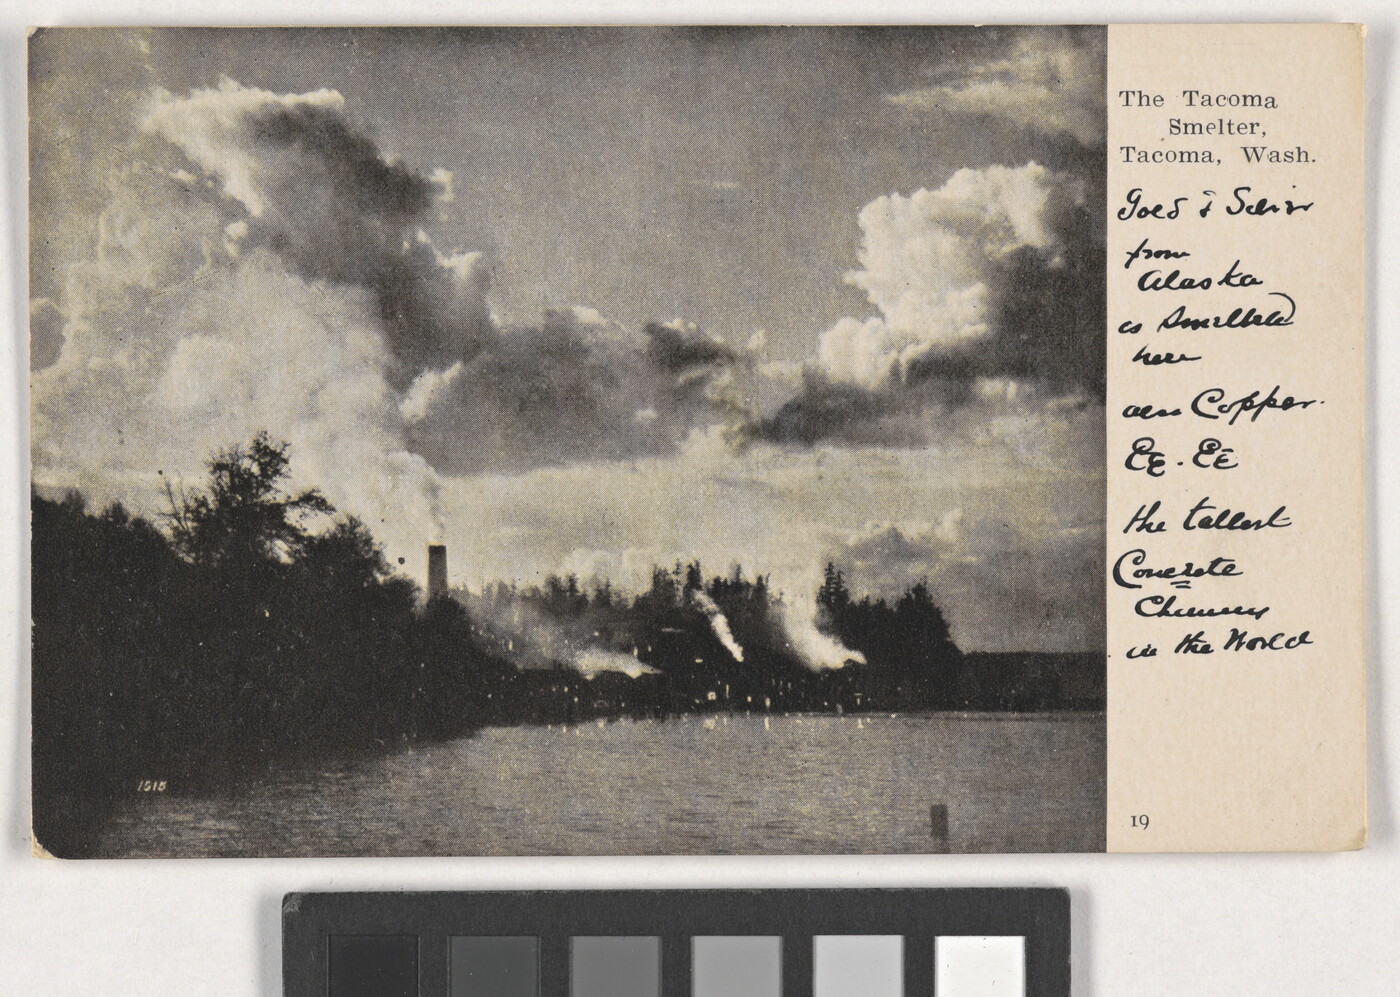 The Tacoma
Smelter,
Tacoma, Wash.
Gold & Silver
from
Alaska
is Smelted
here
also Copper.
the tallest
Concrete
Chimney
in the World
1515
19